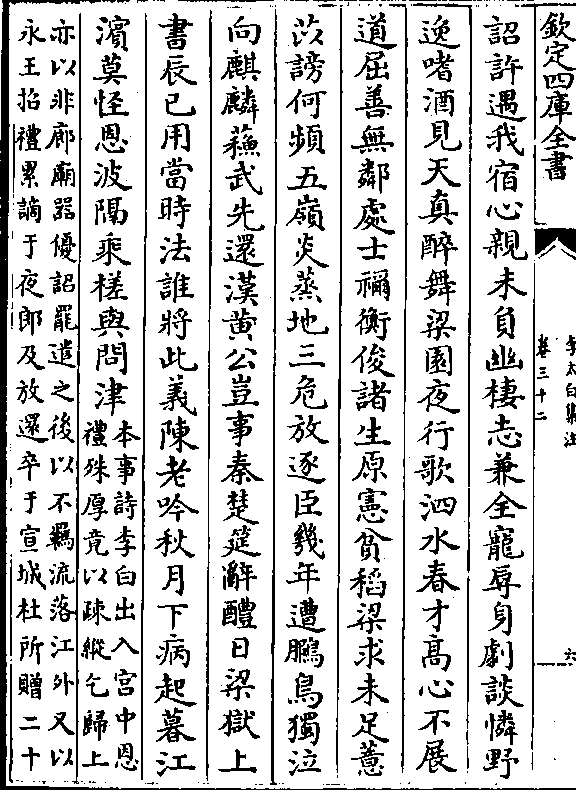 欽定四庫全書
李太白集注
卷三十二
六
詔許遇我宿心親未負幽棲志兼全寵辱身劇談憐野
逸嗜酒見天真醉舞梁園夜行歌泗水春才高心不展
道屈善無鄰處士禰衡俊諸生原憲貧稻粱求未足薏
苡謗何頻五嶺炎蒸地三危放逐臣幾年遭鵩鳥獨泣
向麒麟蘇武先還漢黄公豈事秦楚筵辭醴日梁獄上
書辰已用當時法誰將此義陳老吟秋月下病起暮江
濱莫怪恩波隔乘槎與問津
本事詩李白出入宮中恩
禮殊厚竟以疎縱乞歸上
亦以非廊廟器優詔罷遣之後以不羈流落江外又以
永王招禮累謫于夜郎及放還卒于宣城杜所贈二十